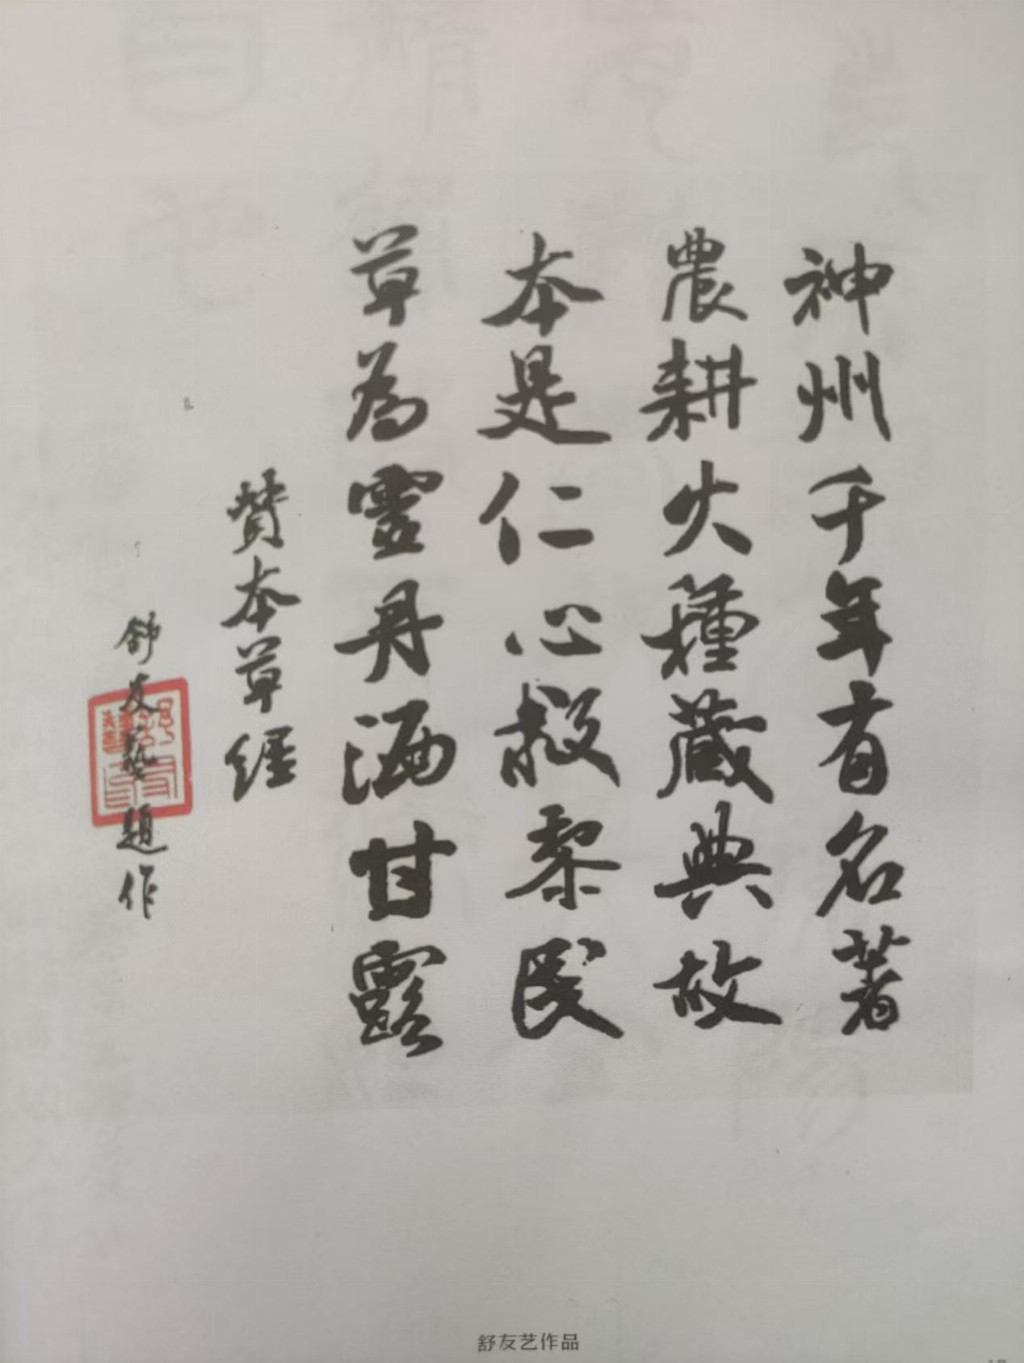 神州千年有名著
農耕火種藏典故
本是仁心救黎民
草為靈丹洒甘露
贊本草經
舒友藝題作
舒友艺作品